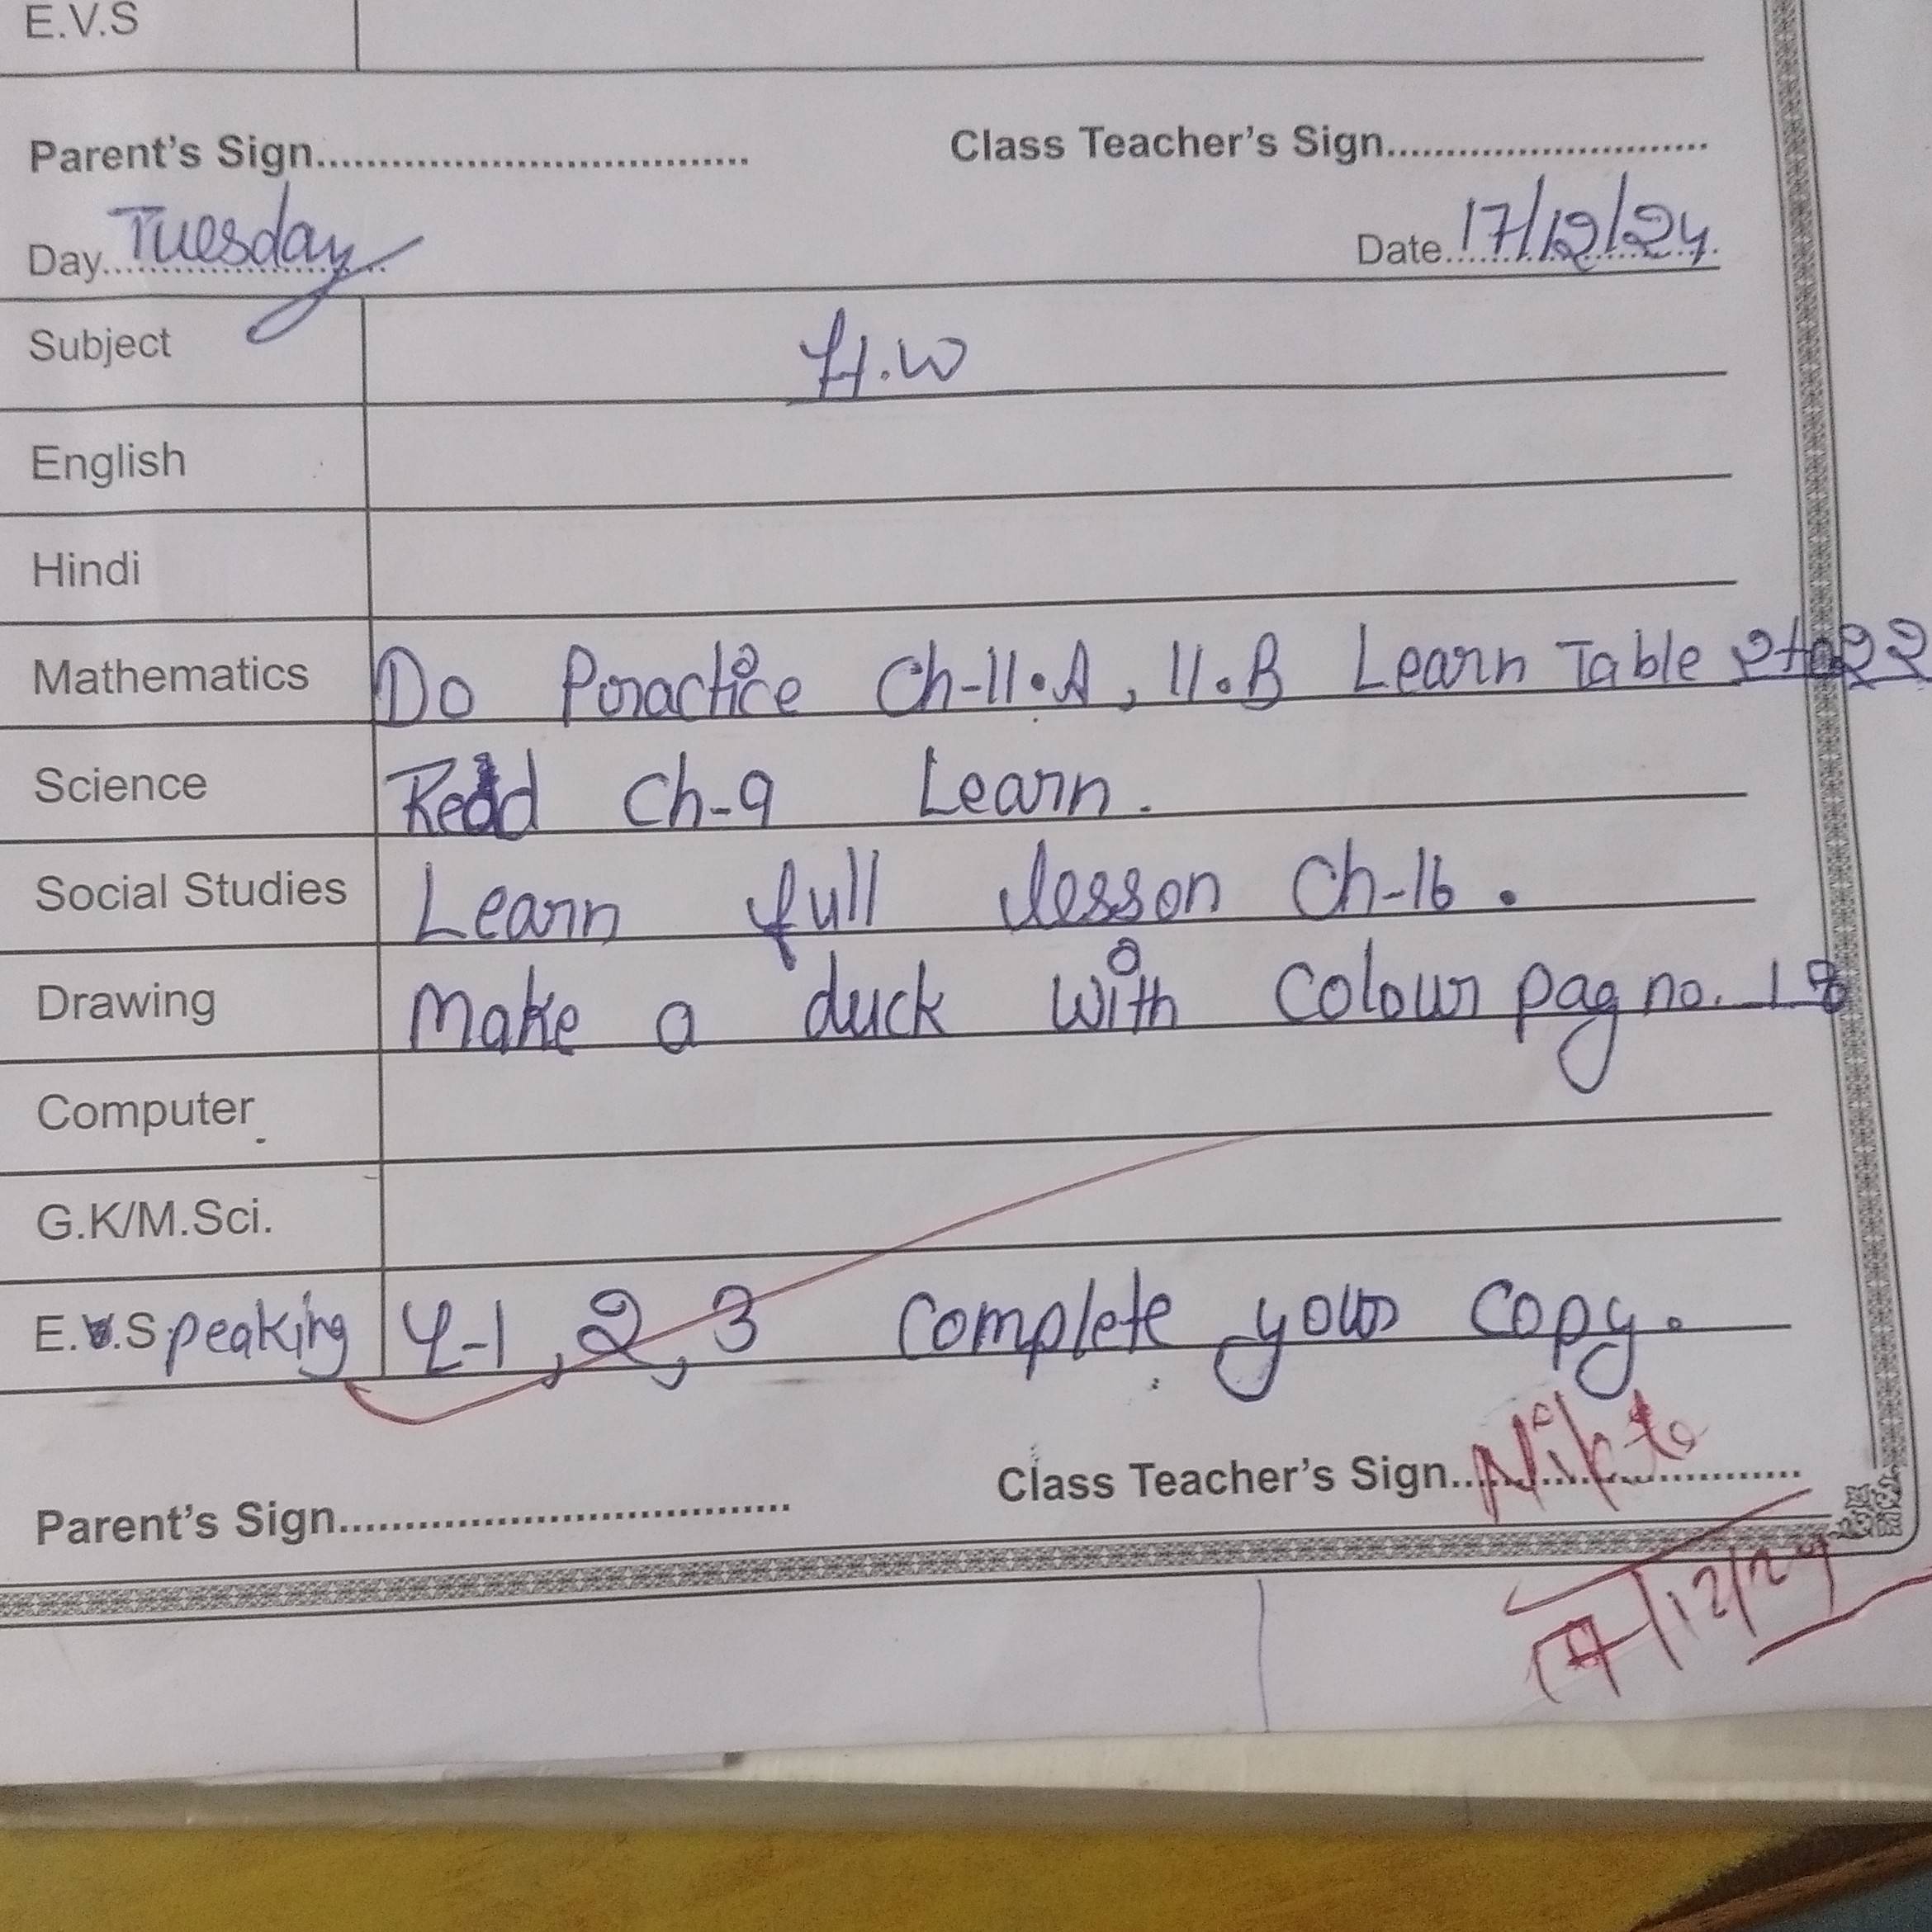 E.V.S
Parent's Sign................................. Class Teacher's Sign..........................
Day Tuesday Date 17/12/24
Subject H.W
English
Hindi
Mathematics Do Practice Ch-11.A, 11.B Learn Table 2to22
Science Read Ch-9 Learn.
Social Studies Learn full lesson Ch-16.
Drawing Make a duck with Colour pag no. 18
Computer
G.K/M.Sci.
E.Speaking L-1, 2, 3 Complete your Copy.
Class Teacher's Sign..........................
Parent's Sign.................................
17/12/24